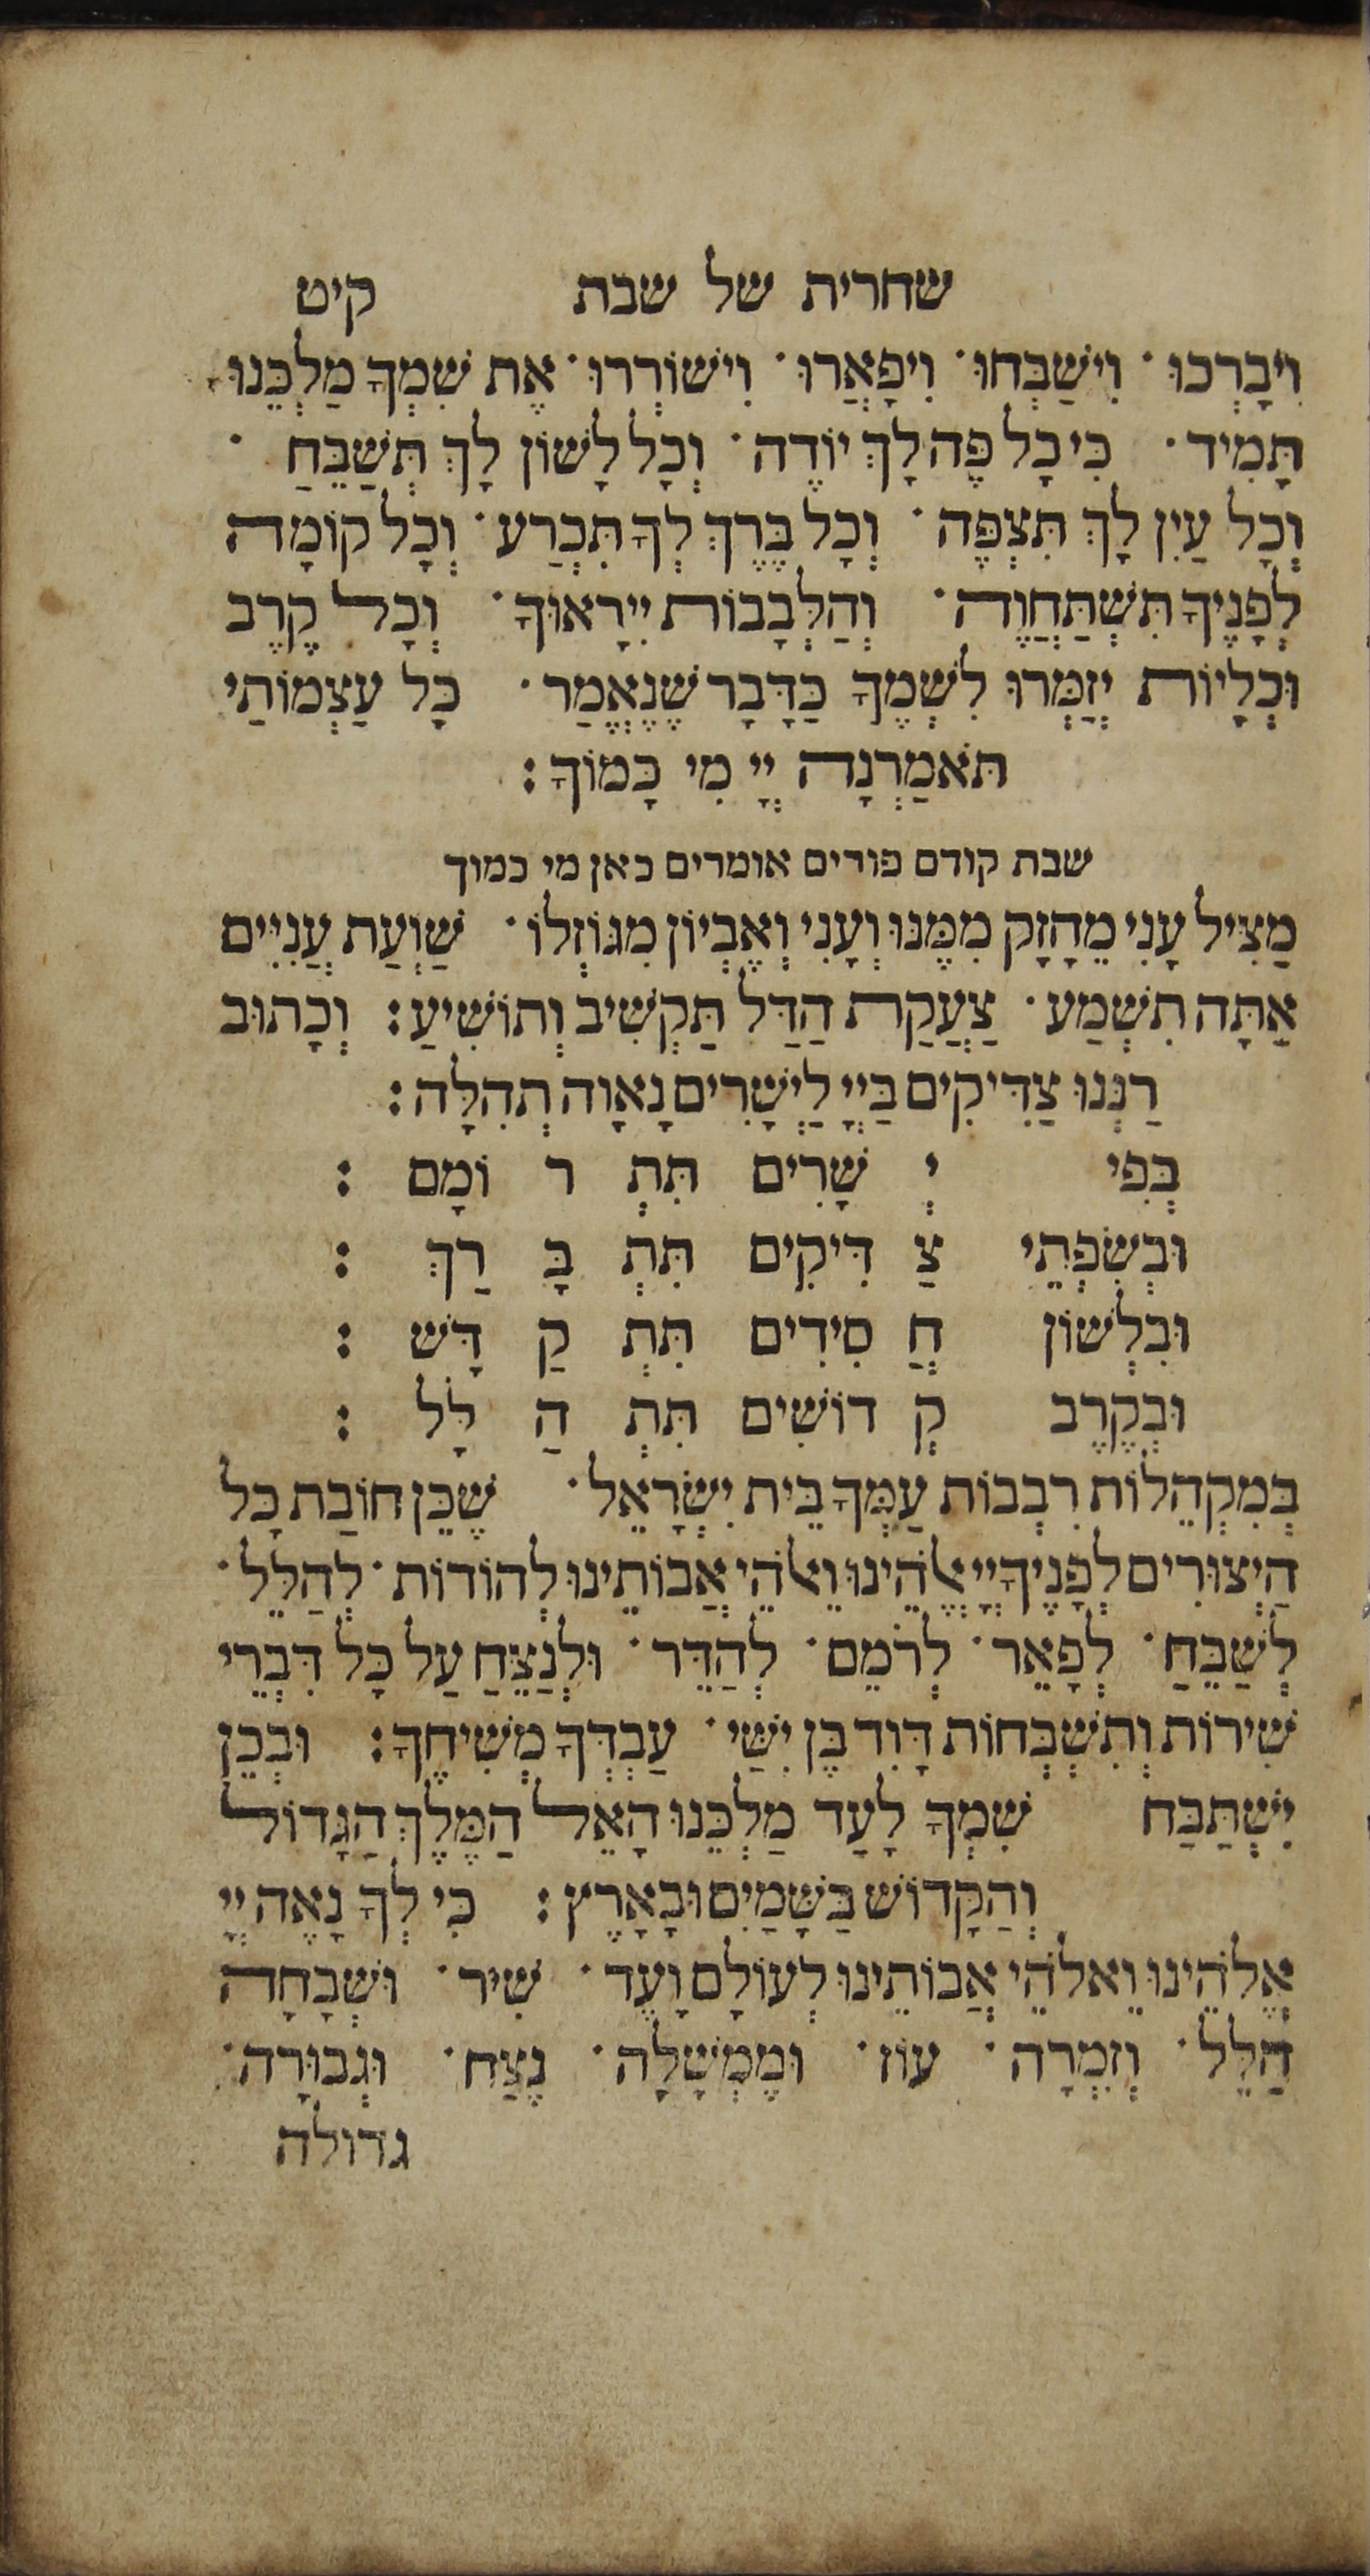 שחרית של שבת קיט
וִיבָרְכוּ · וִישַׁבְּחוּ · וִיפָאֲרוּ · וִישׁוֹרְרוּ · אֶת שִׁמְךָ מַלְכֵּנוּ ·
תָּמִיד · כִּי כָל פֶּה לָךְ יוֹדֶה · וְכָל לָשׁוֹן לָךְ תְּשַׁבֵּחַ ·
וְכָל עַיִן לָךְ תִּצְפֶּה · וְכָל בֶּרֶךְ לְךָ תִּכְרַע · וְכָל קוֹמָה
לְפָנֶיךָ תִּשְׁתַּחֲוֶה · וְהַלְּבָבוֹת יִירָאוּךָ · וְכָל קֶרֶב
וּכְלָיוֹת יְזַמְּרוּ לִשְׁמֶךָ כַּדָּבָר שֶׁנֶּאֱמַר · כָּל עַצְמוֹתַי
תֹּאמַרְנָה יְיָ מִי כָּמוֹךָ :
שבת קודם פורים אומרים כאן מי כמוך
מַצִּיל עָנִי מֵחָזָק מִמֶּנּוּ וְעָנִי וְאֶבְיוֹן מִגּוֹזְלוֹ · שַׁוְעַת עֲנִיִּים
אַתָּה תִשְׁמַע · צַעֲקַת הַדַּל תַּקְשִׁיב וְתוֹשִׁיעַ : וְכָתוּב
רַנְּנוּ צַדִּיקִים בַּיְיָ לַיְשָׁרִים נָאוָה תְהִלָּה :
בְּפִי יְ שָׁרִים תִּתְ ר וֹמָם :
וּבְשִׂפְתֵי צַ דִּיקִים תִּתְ בָּ רַךְ :
וּבִלְשׁוֹן חֲ סִידִים תִּתְ קַ דָּשׁ :
וּבְקֶרֶב קְ דוֹשִׁים תִּתְ הַ לָּל :
בְּמִקְהֵלוֹת רִבְבוֹת עַמְּךָ בֵּית יִשְׂרָאֵל · שֶׁכֵּן חוֹבַת כָּל
הַיְצוּרִים לְפָנֶיךָ יְיָ אֱלֹהֵינוּ וֵאלֹהֵי אֲבוֹתֵינוּ לְהוֹדוֹת · לְהַלֵּל ·
לְשַׁבֵּחַ · לְפָאֵר · לְרֹמֵם · לְהַדֵּר · וּלְנַצֵּחַ עַל כָּל דִּבְרֵי
שִׁירוֹת וְתִשְׁבְּחוֹת דָּוִד בֶּן יִשַׁי · עַבְדְּךָ מְשִׁיחֶךָ : וּבְכֵן
יִשְׁתַּבַּח שִׁמְךָ לָעַד מַלְכֵּנוּ הָאֵל הַמֶּלֶךְ הַגָּדוֹל
וְהַקָּדוֹשׁ בַּשָּׁמַיִם וּבָאָרֶץ : כִּי לְךָ נָאֶה יְיָ
אֱלֹהֵינוּ וֵאלֹהֵי אֲבוֹתֵינוּ לְעוֹלָם וָעֶד · שִׁיר · וּשְׁבָחָה
הַלֵּל · וְזִמְרָה · עוֹז · וּמֶמְשָׁלָה · נֶצַח · וּגְבוּרָה ·
גדולה